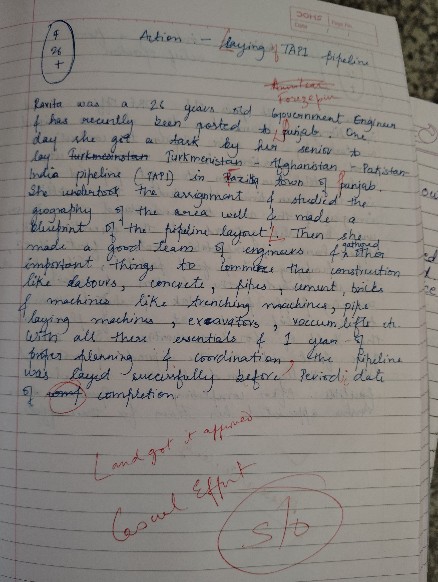 F
26
+
Action :- Laying of TAPI pipeline
Fouzepur
Kavita was a 26 years old Government Engineer
& has recently been posted to Punjab. One
day she got a task by her senior to
lay Turkmenistan - Afghanistan - Pakistan-
India pipeline (TAPI) in town of Punjab.
She undertook the assignment & studied the
geography of the area well & made a
blueprint of the pipeline layout. Then she
made a good team of engineers & gathered other
important things to commence the construction
like labours, concrete, pipes, cement, bricks
& machines like trenching machines, pipe
laying machines, excavators, vaccum lifts etc.
With all these essentials & 1 year of
proper planning & coordination, the pipeline
was layed successfully before Period date
of completion.
Land got it approved
Casual Effort
S/o